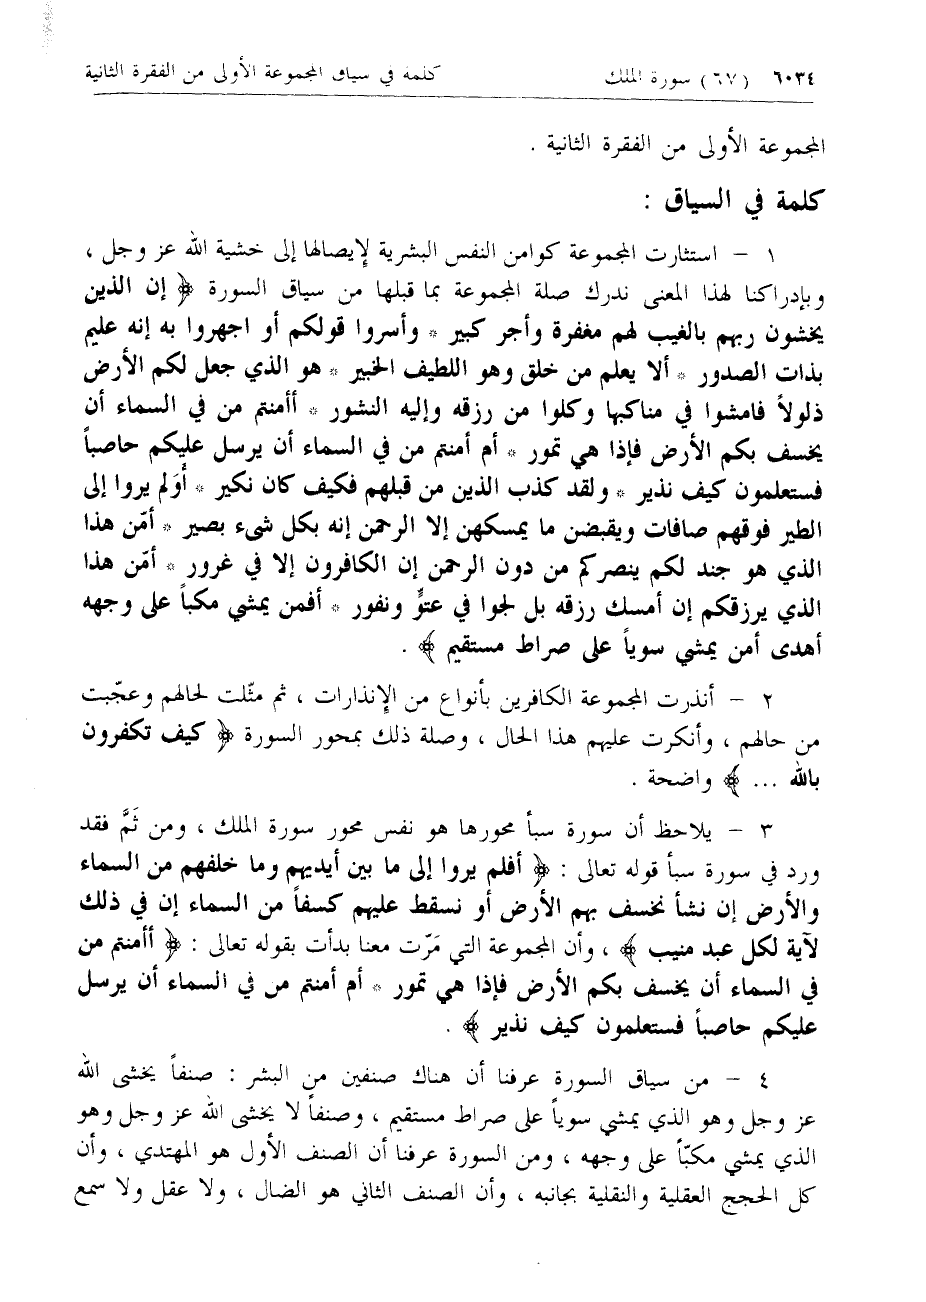 ٦٠٣٤ (٦٧) سورة الملك كلمة في سياق المجموعة الأولى من الفقرة الثانية
المجموعة الأولى من الفقرة الثانية .
كلمة في السياق :
١ – استثارت المجموعة كوامن النفس البشرية لإيصالها إلى خشية الله عز وجل ،
وبإدراكنا لهذا المعنى ندرك صلة المجموعة بما قبلها من سياق السورة ﴿ إن الذين
يخشون ربهم بالغيب لهم مغفرة وأجر كبير * وأسروا قولكم أو اجهروا به إنه عليم
بذات الصدور * ألا يعلم من خلق وهو اللطيف الخبير * هو الذي جعل لكم الأرض
ذلولاً فامشوا في مناكبها وكلوا من رزقه وإليه النشور * أأمنتم من في السماء أن
يخسف بكم الأرض فإذا هي تمور * أم أمنتم من في السماء أن يرسل عليكم حاصباً
فستعلمون كيف نذير * ولقد كذب الذين من قبلهم فكيف كان نكير * أَوَلم يروا إلى
الطير فوقهم صافات ويقبضن ما يمسكهن إلا الرحمن إنه بكل شيء بصير * أمّن هذا
الذي هو جند لكم ينصركم من دون الرحمن إن الكافرون إلا في غرور * أمّن هذا
الذي يرزقكم إن أمسك رزقه بل لجوا في عتوٍّ ونفور * أفمن يمشي مكباً على وجهه
أهدى أمن يمشي سوياً على صراط مستقيم ﴾ .
٢ – أنذرت المجموعة الكافرين بأنواع من الإنذارات ، ثم مثّلت لحالهم وعجّبت
من حالهم ، وأنكرت عليهم هذا الحال ، وصلة ذلك بمحور السورة ﴿ كيف تكفرون
بالله ... ﴾ واضحة .
٣ – يلاحظ أن سورة سبأ محورها هو نفس محور سورة الملك ، ومن ثَمَّ فقد
ورد في سورة سبأ قوله تعالى : ﴿ أفلم يروا إلى ما بين أيديهم وما خلفهم من السماء
والأرض إن نشأ نخسف بهم الأرض أو نسقط عليهم كسفاً من السماء إن في ذلك
لآية لكل عبد منيب ﴾ ، وأن المجموعة التي مَرّت معنا بدأت بقوله تعالى : ﴿ أأمنتم من
في السماء أن يخسف بكم الأرض فإذا هي تمور * أم أمنتم من في السماء أن يرسل
عليكم حاصباً فستعلمون كيف نذير ﴾ .
٤ – من سياق السورة عرفنا أن هناك صنفين من البشر : صنفاً يخشى الله
عز وجل وهو الذي يمشي سوياً على صراط مستقيم ، وصنفاً لا يخشى الله عز وجل وهو
الذي يمشي مكبّاً على وجهه ، ومن السورة عرفنا أن الصنف الأول هو المهتدي ، وأن
كل الحجج العقلية والنقلية بجانبه ، وأن الصنف الثاني هو الضال ، ولا عقل ولا سمع